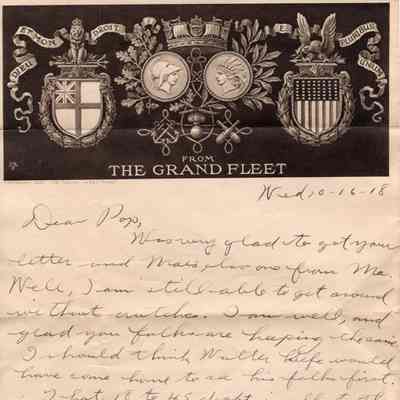 DIEU ET MON DROIT
E PLURIBUS UNUM
FROM
THE GRAND FLEET
Wed, 10-16-18
Dear Pop,
Was very glad to get your
letter and Ma's, also one from Ma
Well, I am still able to get around
without crutches. I am well, and
glad you folks are keeping the same
I should think Walter would
have come home to see his folks first.